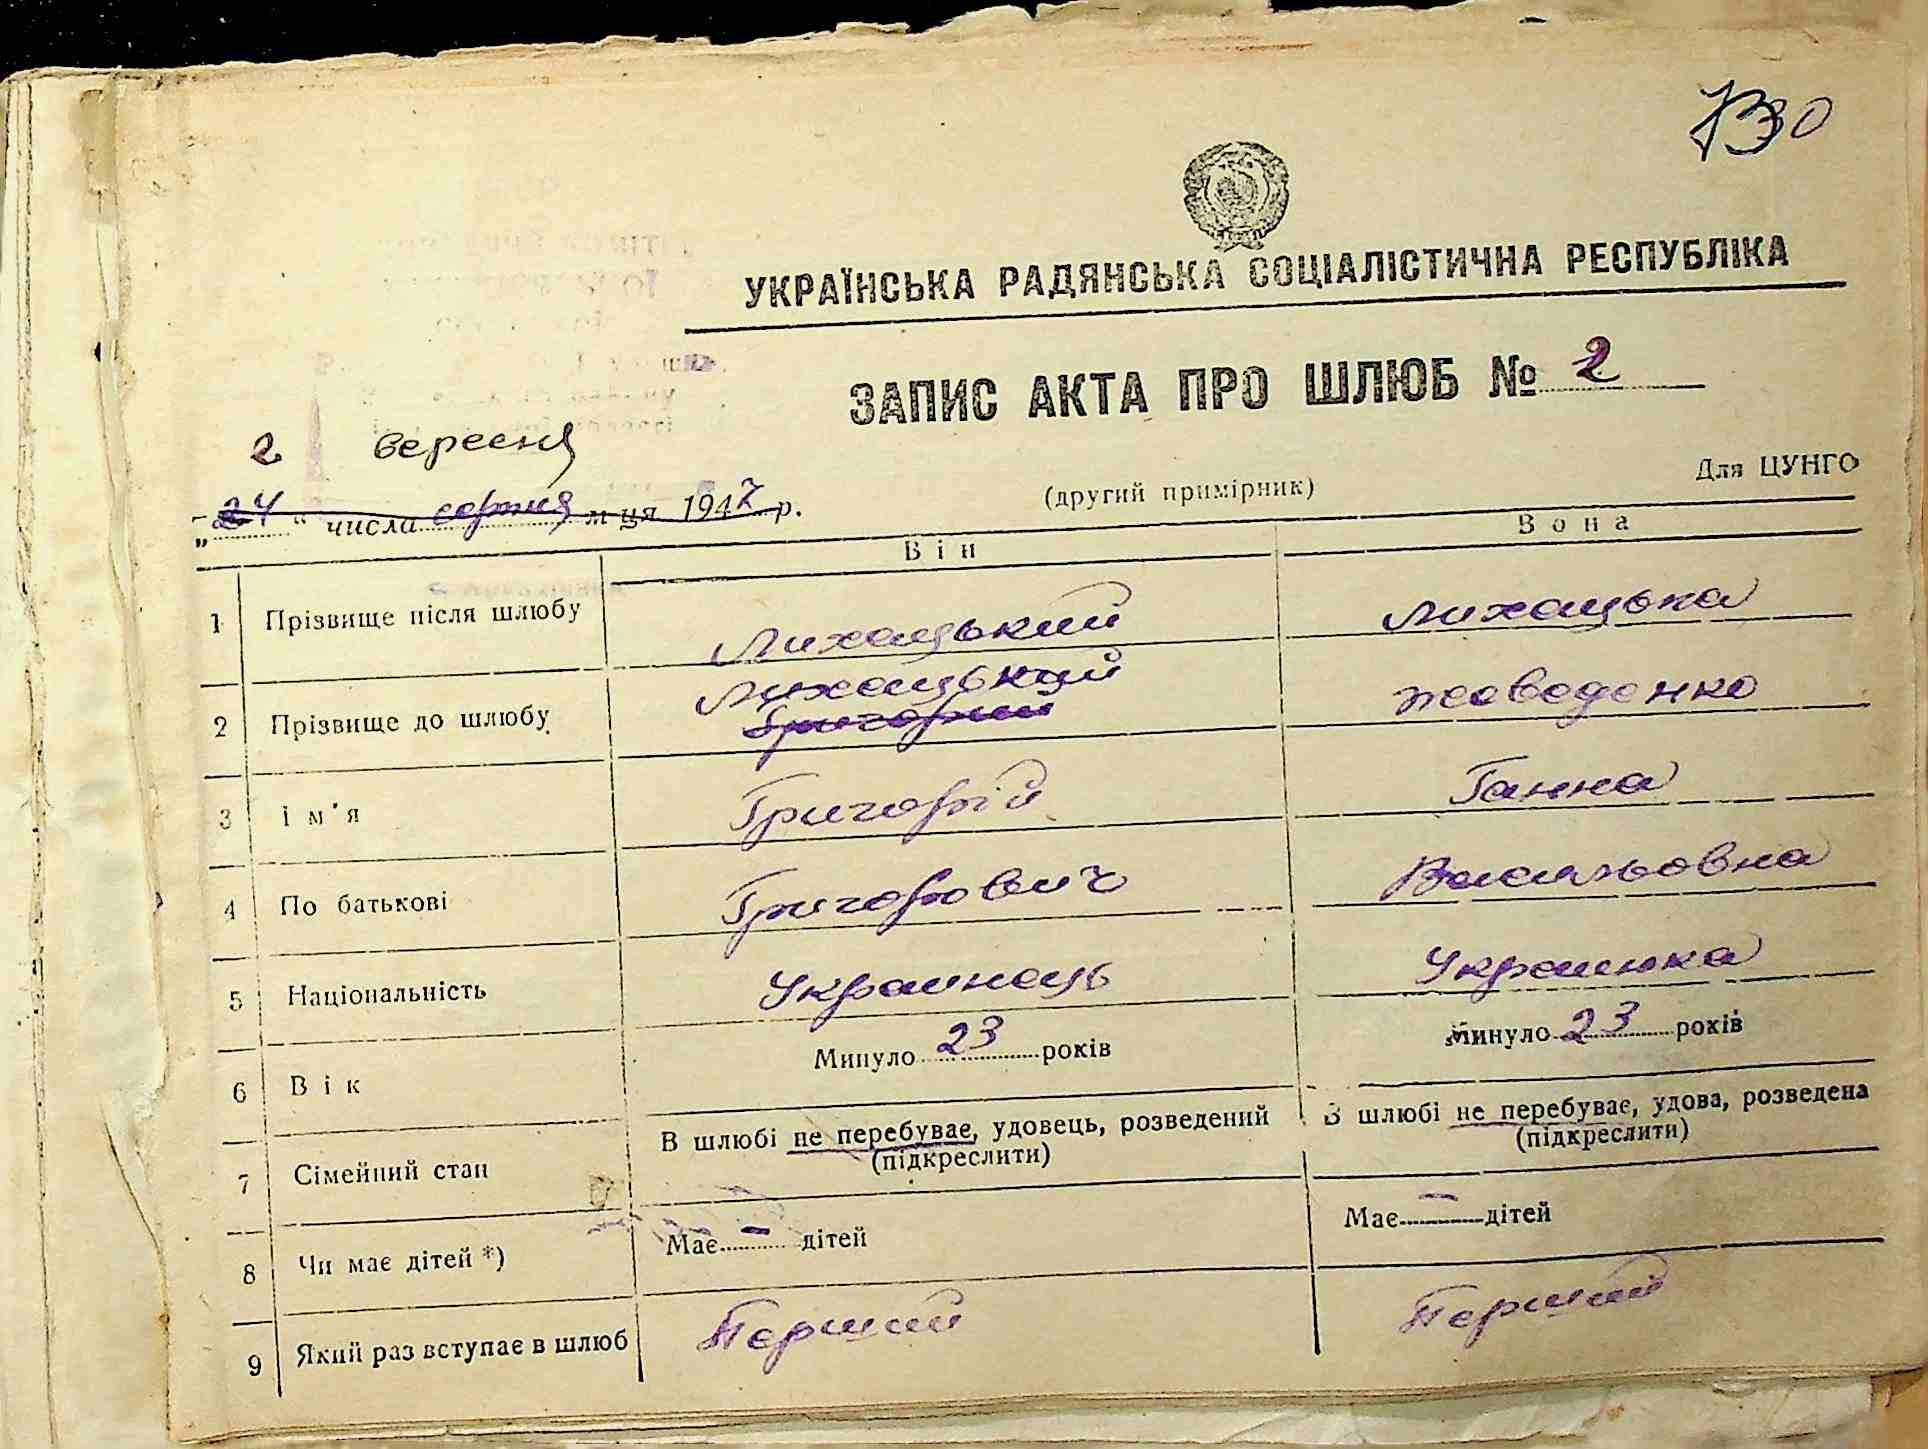 УКРАЇНСЬКА РАДЯНСЬКА СОЦІАЛІСТИЧНА РЕСПУБЛІКА
ЗАПИС АКТА ПРО ШЛЮБ № 2
2 вересня
„24“ числа серпня м-ця 1947 р.
(другий примірник)
Для ЦУНГО
Він
Вона
1 Прізвище після шлюбу Лихацький Лихацька
2 Прізвище до шлюбу Лихацький Григорий
3 Ім'я Григорій Ганна
4 По батькові Григорович Васильовна
5 Національність Украинець Украинка
6 Вік Минуло 23 років Минуло 23 років
7 Сімейний стан В шлюбі не перебуває, удовець, розведений (підкреслити) В шлюбі не перебуває, удова, розведена (підкреслити)
8 Чи має дітей *) Має - дітей Має - дітей
9 Який раз вступає в шлюб Перший Перший